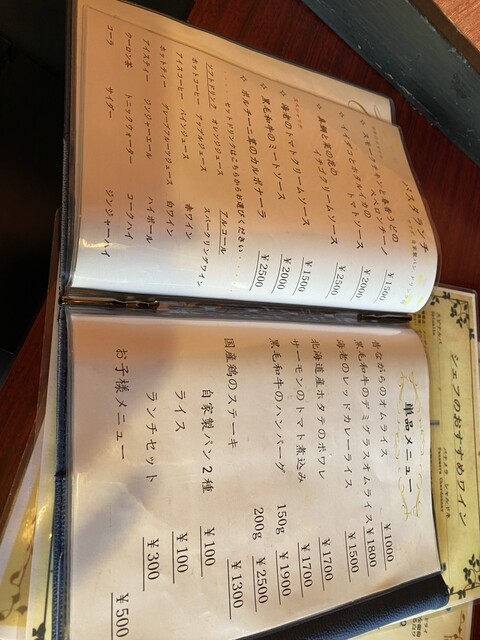 パスタランチ
スモークチキンと春きゃうどの
ペペロンチーノ ¥1500
トマトソース ¥2000
イチゴクリームソース ¥2500
海老のトマトクリームソース ¥1500
黒毛和牛のミートソース ¥2000
ポルチーニ茸のカルボナーラ ¥2500
セットドリンクはこちらからお選びください
ソフトドリンク
オレンジジュース
ホットコーヒー アップルジュース
アイスコーヒー パインジュース
ホットティー グレープフルーツジュース
アイスティー ジンジャーエール
ウーロン茶 トニックウォーター
コーラ サイダー
アルコール
スパークリングワイン
赤ワイン
白ワイン
ハイボール
コークハイ
ジンジャーハイ
単品メニュー
昔ながらのオムライス ¥1000
黒毛和牛のデミグラスオムライス ¥1800
海老のレッドカレーライス ¥1500
北海道産ホタテのポワレ ¥1700
サーモンのトマト煮込み ¥1700
黒毛和牛のハンバーグ 150g ¥1900
200g ¥2500
国産鶏のステーキ ¥1300
自家製パン2種 ¥100
ライス ¥100
ランチセット ¥300
お子様メニュー ¥500
シェフのおすすめワイン